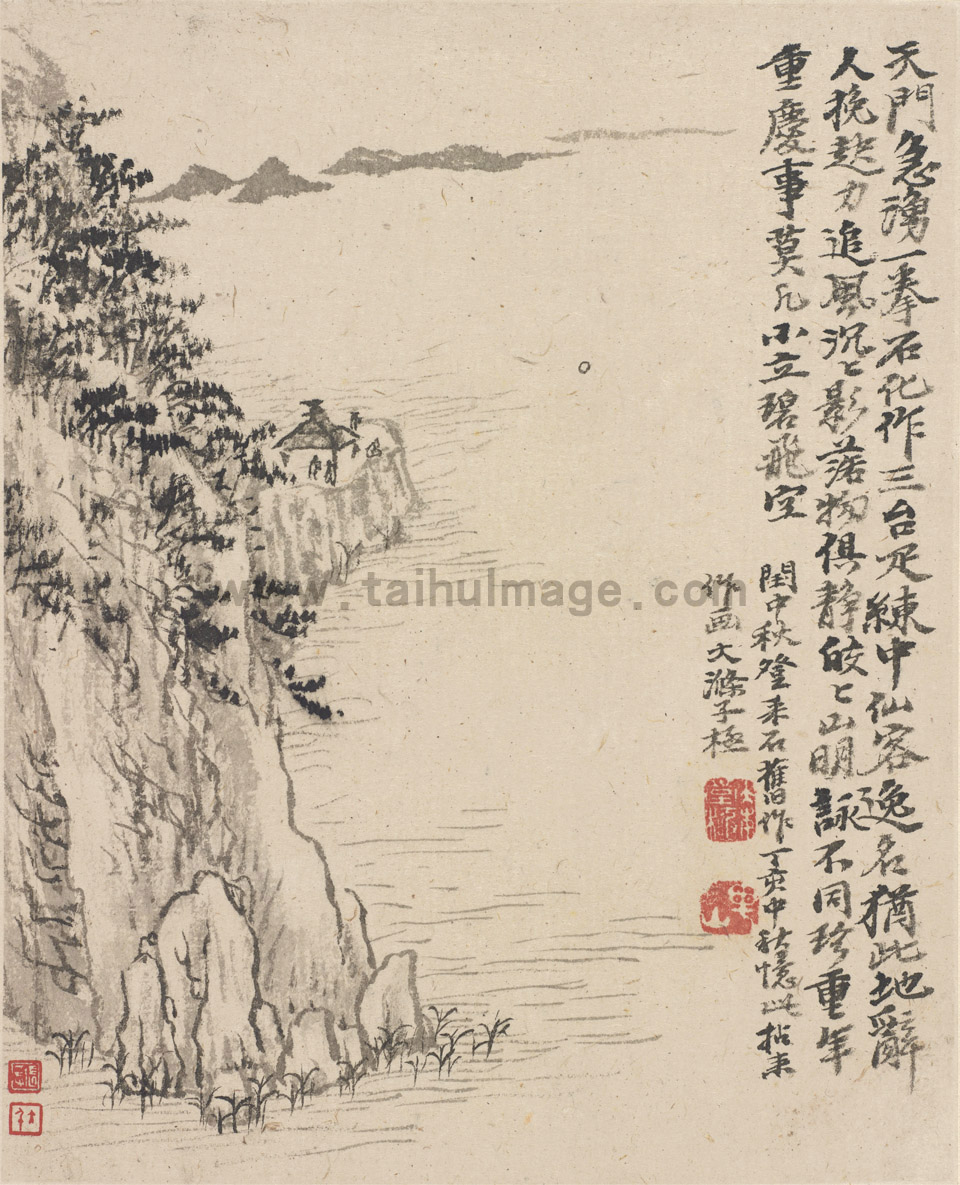 天門急湧一拳石化作三台足練中仙客逸名猶此地辭
人挽起力追風沉〻影落物俱靜皎〻山明詠不同珍重年
重慶事莫小立碧飛空
閏中秋登采石舊作丁亥中秋憶此拈來
作画大滌子極
www.taihuImage.com